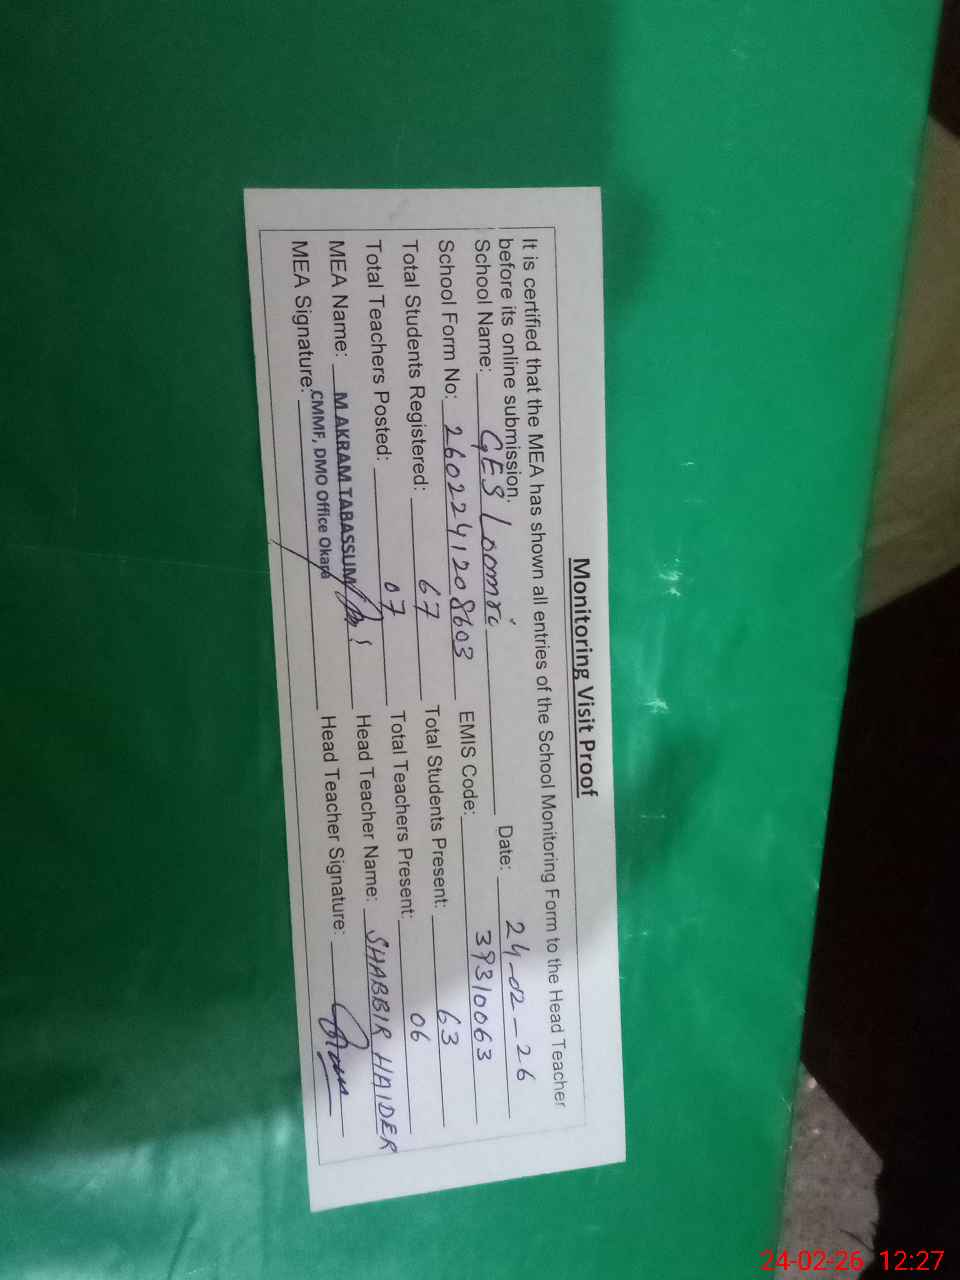 Monitoring Visit Proof
It is certified that the MEA has shown all entries of the School Monitoring Form to the Head Teacher
before its online submission.
School Name: GES Date: 24-02-26
School Form No: 2602241208603 EMIS Code: 39310063
Total Students Registered: 67 Total Students Present: 63
Total Teachers Posted: 07 Total Teachers Present: 06
MEA Name: M AKRAM TABASSUM Head Teacher Name: SHABBIR HAIDER
CMMF, DMO Office Okara
MEA Signature: Head Teacher Signature:
24-02-26 12:27